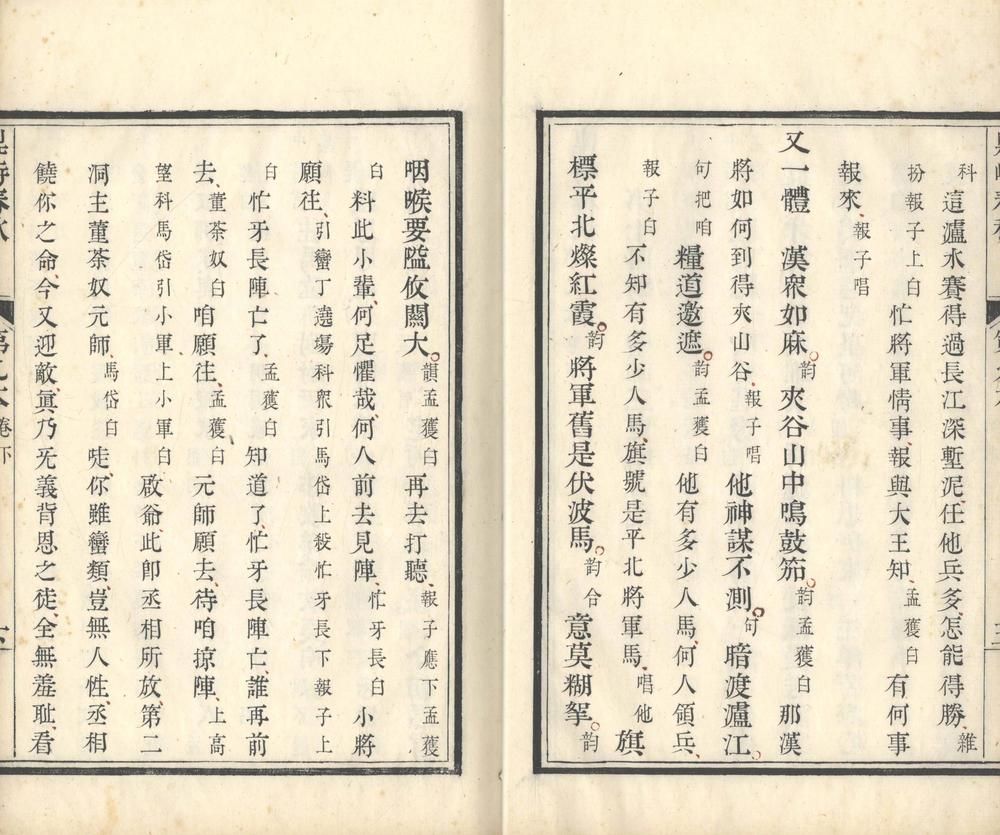 科這瀘水賽得過長江深塹泥任他兵多怎能得勝雜
扮報子上白忙將軍情事報與大王知孟獲白有何事
報來報子唱
又一體漢衆如麻韵夾谷山中鳴鼓笳韵孟獲白那漢
將如何到得夾山谷報子唱他神謀不測句暗渡瀘江
句把咱糧道邀遮韵孟獲白他有多少人馬何人領兵
報子白不知有多少人馬旗號是平北將軍馬唱他旗
標平北燦紅霞韵將軍舊是伏波馬韵合意莫糊拏韵
咽喉要隘攸關大韻孟獲白再去打聽報子應下孟獲
白料此小輩何足懼哉何人前去見陣忙牙長白小將
願往引蠻丁遶場科衆引馬岱上殺忙牙長下報子上
白忙牙長陣亡了孟獲白知道了忙牙長陣亡誰再前
去董荼奴白咱願往孟獲白元師願去待咱掠陣上高
望科馬岱引小軍上小軍白啟爺此卽丞相所放第二
洞主董荼奴元師馬岱白哇你雖蠻類豈無人性丞相
饒你之命今又迎敵眞乃旡義背恩之徒全無羞耻看
卷下